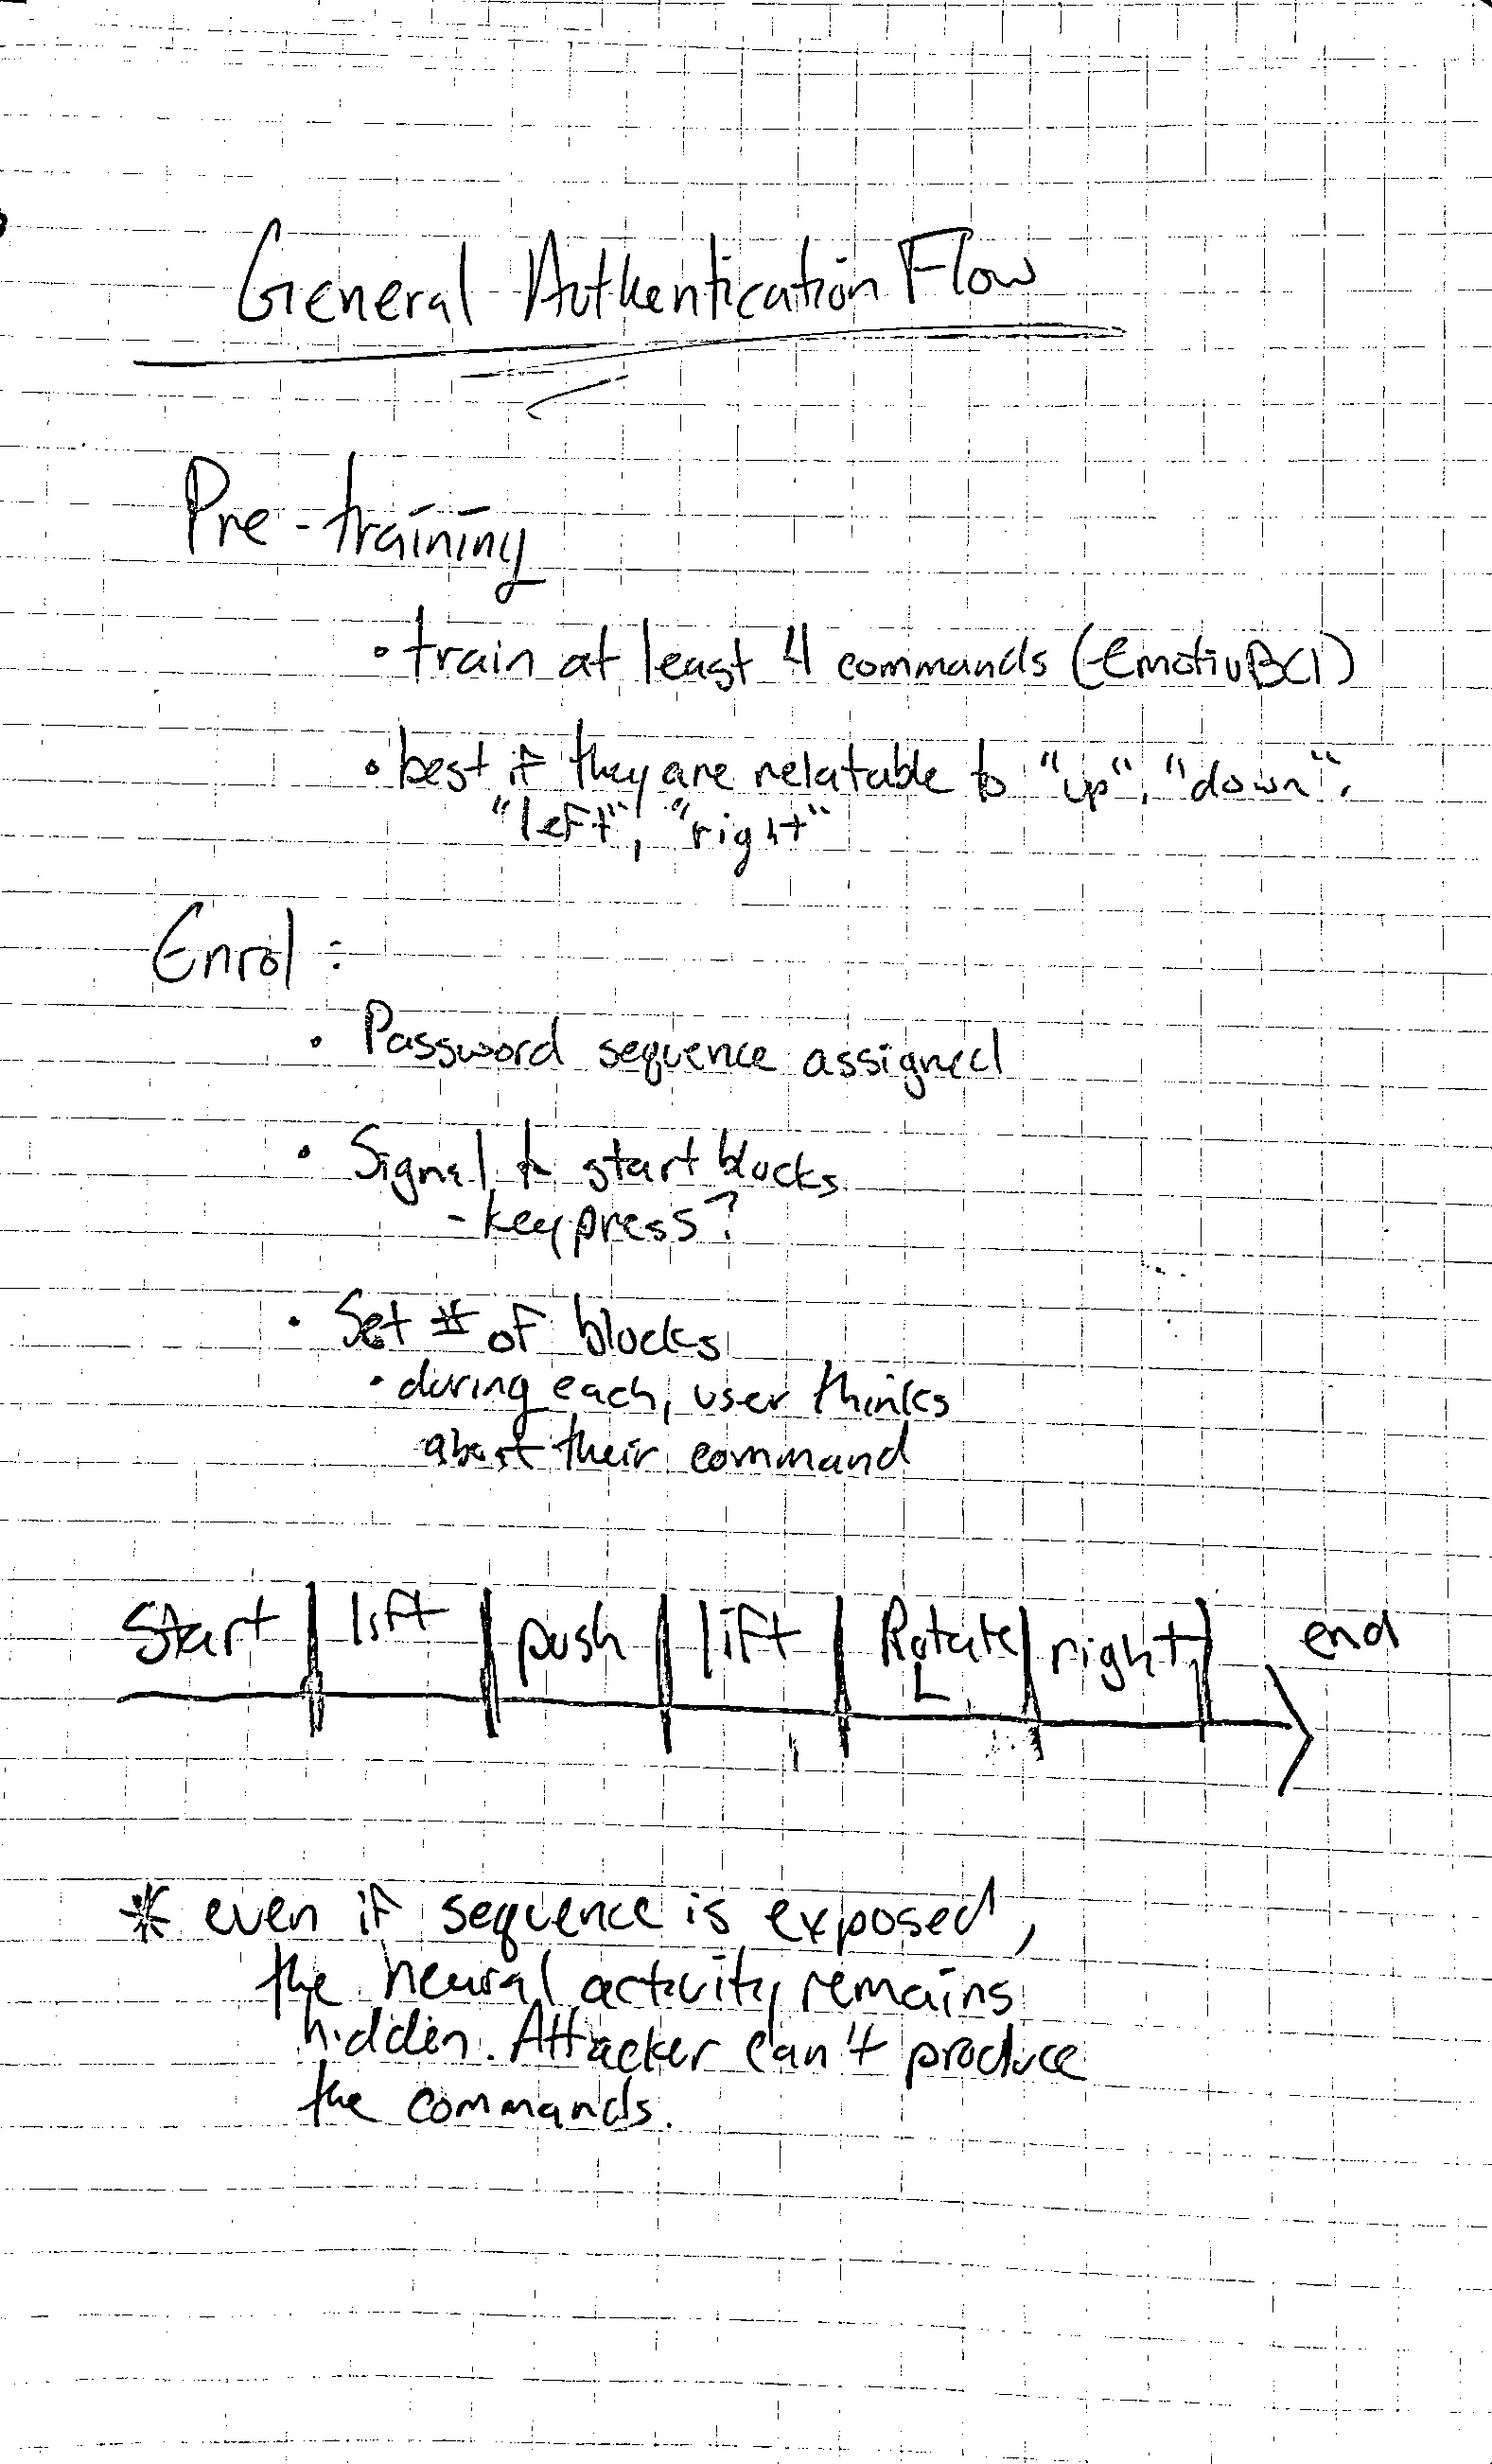 General Authentication Flow
Pre-training
• train at least 4 commands (EmotivBCI)
• best if they are relatable to "up", "down",
"left", "right"
Enrol:
• Password sequence assigned
• Signal to start blocks
- key press?
• Set # of blocks
• during each, user thinks
about their command
Start | lift | push | lift | Rotate | right | end
L
* even if sequence is exposed,
the neural activity remains
hidden. Attacker can't produce
the commands.